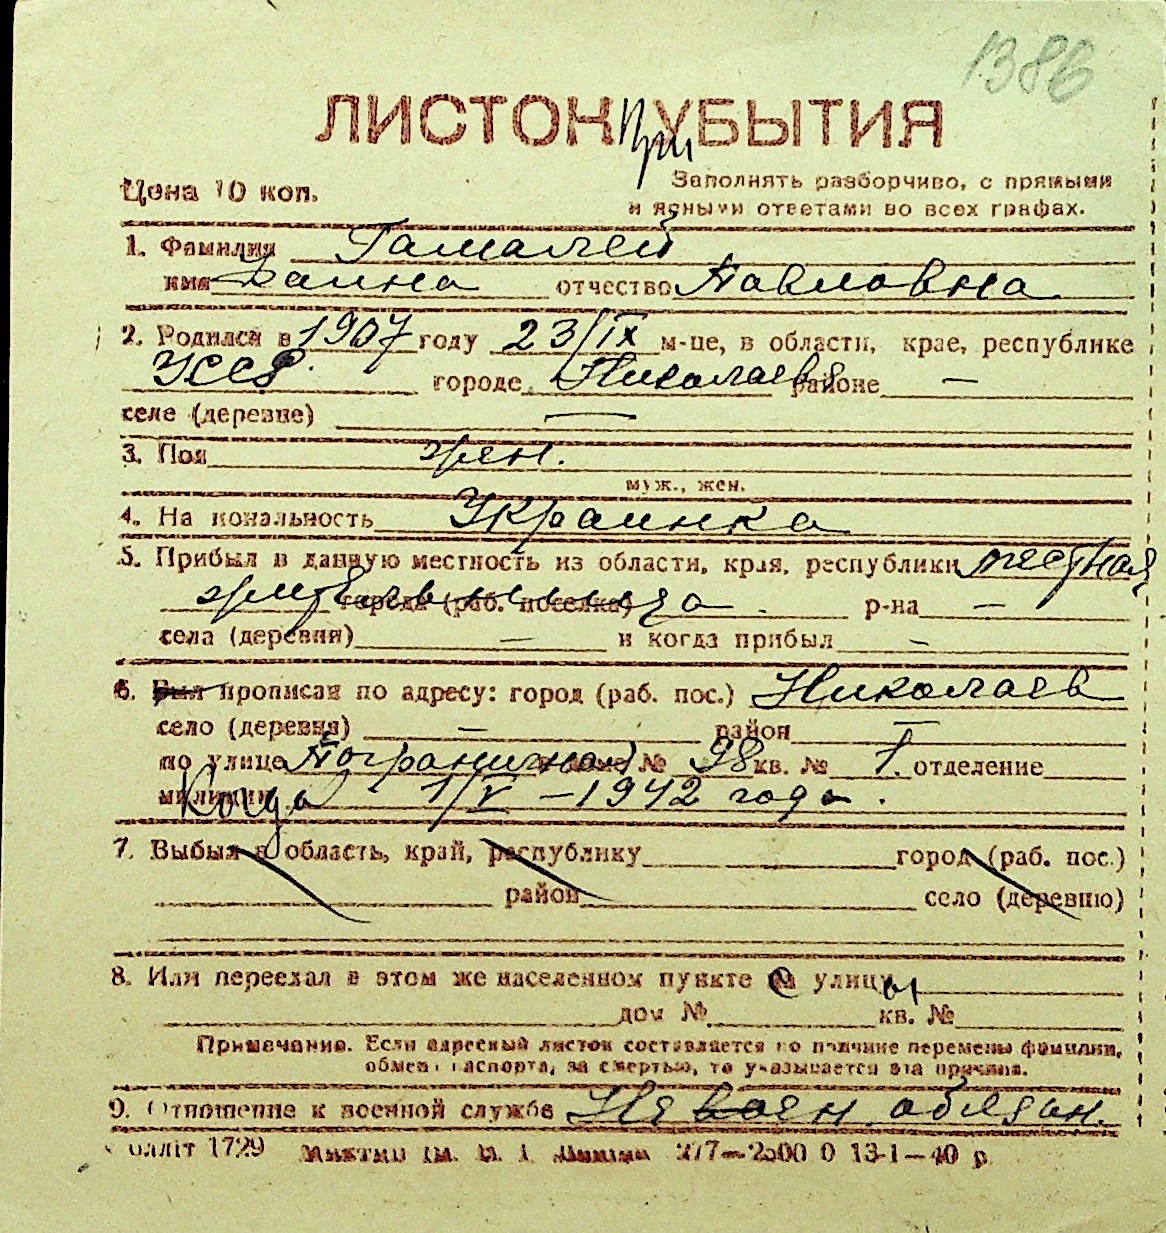 1386
ЛИСТОК При УБЫТИЯ
Цена 10 коп.
Заполнять разборчиво, с прямыми
и ясными ответами во всех графах.
1. Фамилия Гамалей
имя отчество Павловна
2. Родился в 1907 году 23/IX м-це, в области, крае, республике
УССР городе Николаев районе —
селе (деревне) —
3. Пол жен.
муж., жен.
4. Национальность Украинка
5. Прибыл в данную местность из области, края, республики местная
жительница города (раб. поселка) р-на —
села (деревня) — и когда прибыл —
6. Был прописан по адресу: город (раб. пос.) Николаев
село (деревня) — район —
по улице Пограничной № 98 кв. № 1. отделение
милиции Когда 1/V – 1942 года.
7. Выбыл в область, край, республику город (раб. пос.)
район село (деревню)
8. Или переехал в этом же населенном пункте с улицы
дом № кв. №
Примечание. Если адресный листок составляется по причине перемены фамилии,
обмена паспорта, за смертью, то указывается эта причина.
9. Отношение к военной службе Не воен обязан.
олліт 1729 277—2500 0 13-1—40 р